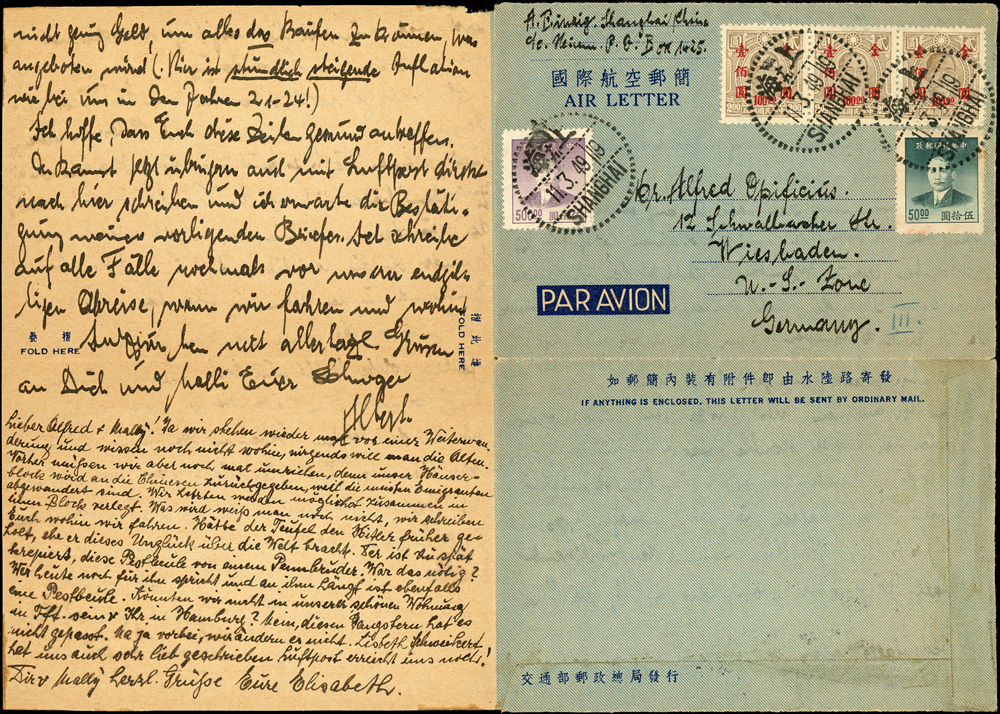 nicht genug Geld, um alles das Kaufen zu können, was
angeboten wird (. Hier ist stündlich steigende Inflation
wie bei uns in den Jahren 21-24!)
Ich hoffe, dass Euch diese Zeilen gesund antreffen.
Du kannst jetzt übrigens auch mit Luftpost direkt
nach hier schreiben und ich erwarte die Bestäti-
gung meines vorligenden Briefes. Ich schreibe
auf alle Fälle nochmals vor unserer endgül-
tigen Abreise, wann wir fahren und wohin
ben mit allerlage Grüssen
an Dich und Malli Euer Schwager
Albert.
摺 疊
FOLD HERE
摺 此 邊
FOLD HERE
Lieber Alfred & Mally! Ja wir stehen wieder mal vor einer Weiterwan
derung und wissen noch nicht wohin, nirgends will man die Alten.
Vorher müssen wir aber noch mal umziehen, denn unser Häuser-
block wird an die Chinesen zurückgegeben, weil die meisten Emigranten
abgewandert sind. Wir Letzten werden möglichst zusammen in
einen Block verlegt. Was wird weiß man noch nicht, wir schreiben
Euch wohin wir fahren. Hätte der Teufel den Hitler früher ge-
holt, ehe er dieses Unglück über die Welt bracht. Der ist zu spät
krepiert, diese Pestbeule von einem Pennbruder. War das nötig?
Wer heute noch für ihn spricht und an ihm hängt ist ebenfalls
eine Pestbeule. Könnten wir nicht in unserer schönen Wohnung
in Fft. sein & Ihr in Hamburg? Nein, diesen Gangstern hat es
nicht gepasst. Na ja vorbei, wir ändern es nicht. Lisbeth Schweikert
hat uns auch sehr lieb geschrieben Luftpost erreicht uns noch!
Dir & Mally herzl. Grüsse Eure Elisabeth.
A. Sinzig. Shanghai/China
c/o. P. O. Box 1425.
國際航空郵簡
AIR LETTER
壹佰圓 金圓 100.00
上海
11.3.49.19
SHANGHAI
上海
11.3.49.19
SHANGHAI
500.00
上海
11.3.49.19
SHANGHAI
中華民國郵政
50.00 伍拾圓
Alfred Opificius.
12 Schwalbacher Str.
Wiesbaden.
U.-S.- Zone
Germany.
III.
PAR AVION
如郵簡內裝有附件即由水陸路寄發
IF ANYTHING IS ENCLOSED, THIS LETTER WILL BE SENT BY ORDINARY MAIL.
交通部郵政總局發行